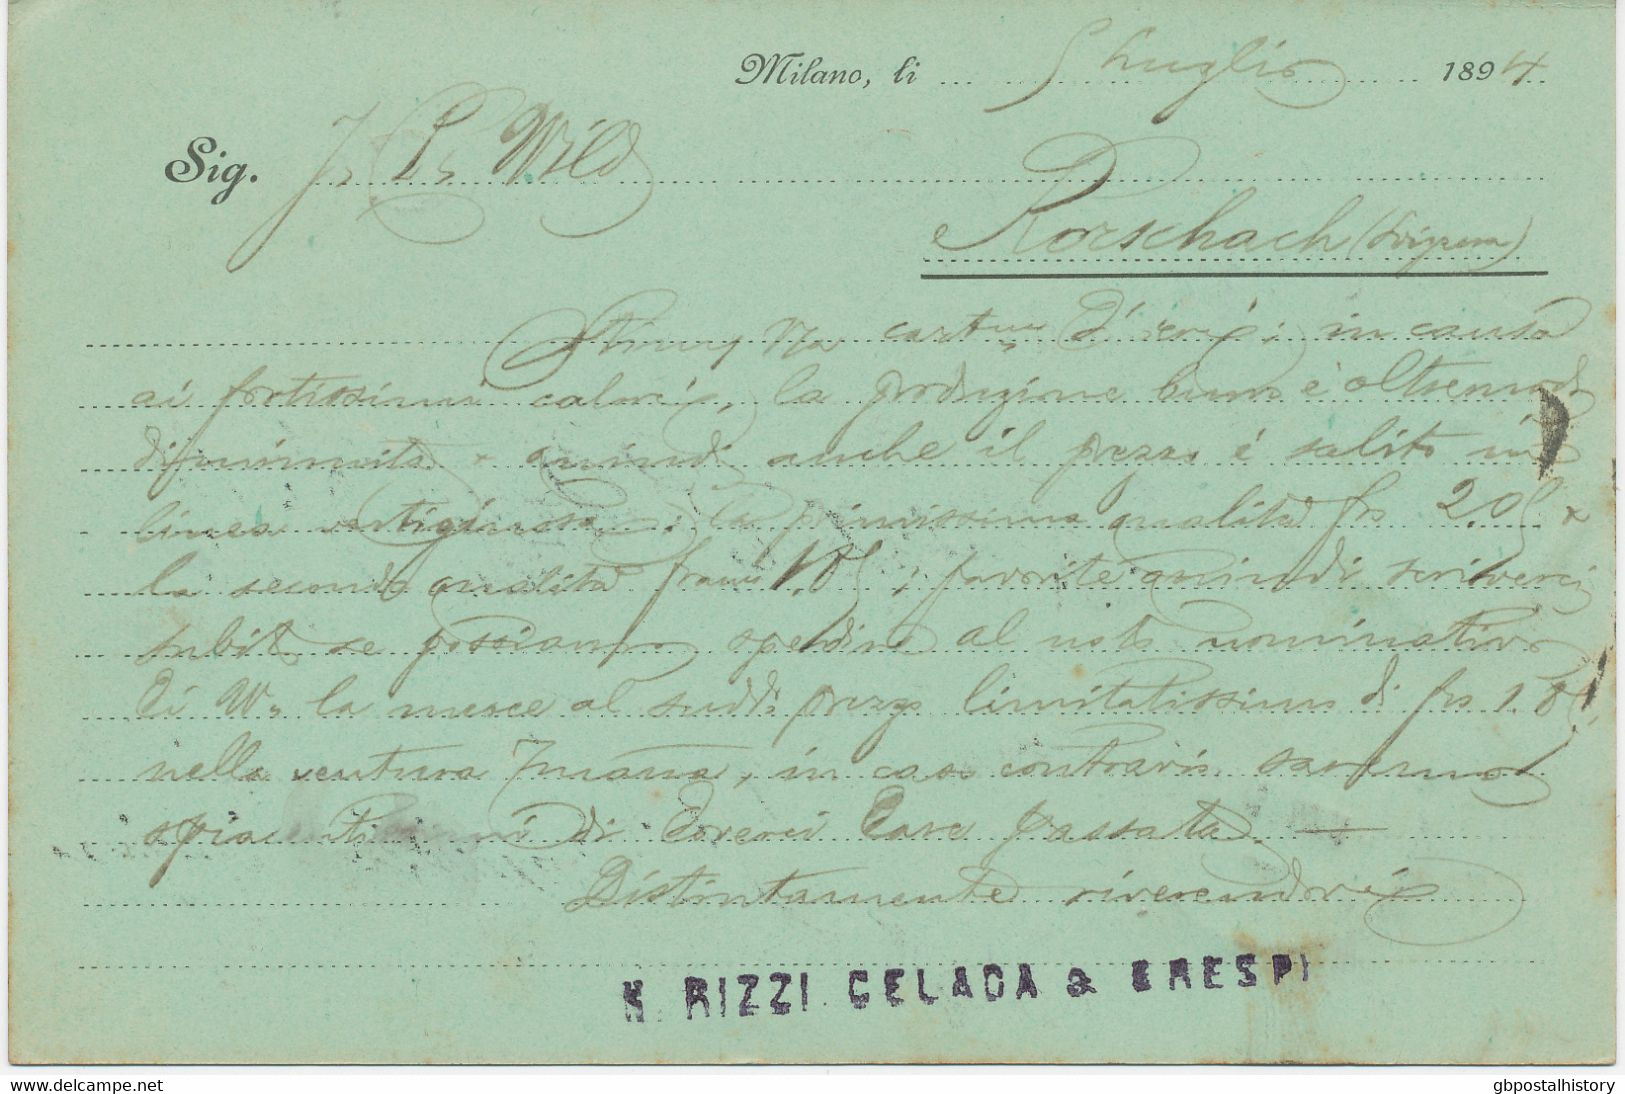 Milano, li 5 Luglio 1894
Sig. J. P. Wild
Rorschach (Svizzera)
in causa
ai fortissimi calori, la produzione è oltremodo
diminuita & quindi anche il prezzo é salito in
linea vertiginosa; la primissima qualità frs 2.05 &
la seconda qualità 1.85; favorite quindi scriverci
subito se possiamo spedire al noto nominativo
di W. la merce al sudd. prezzo limitatissimo di frs 1.85,
nella ventura 7mana, in caso contrario saremo
spiacentissimi di doverci passata. —
Distintamente riverendovi
N. RIZZI CELADA & CRESPI
© the-saleroom.com
gbpostalhistory